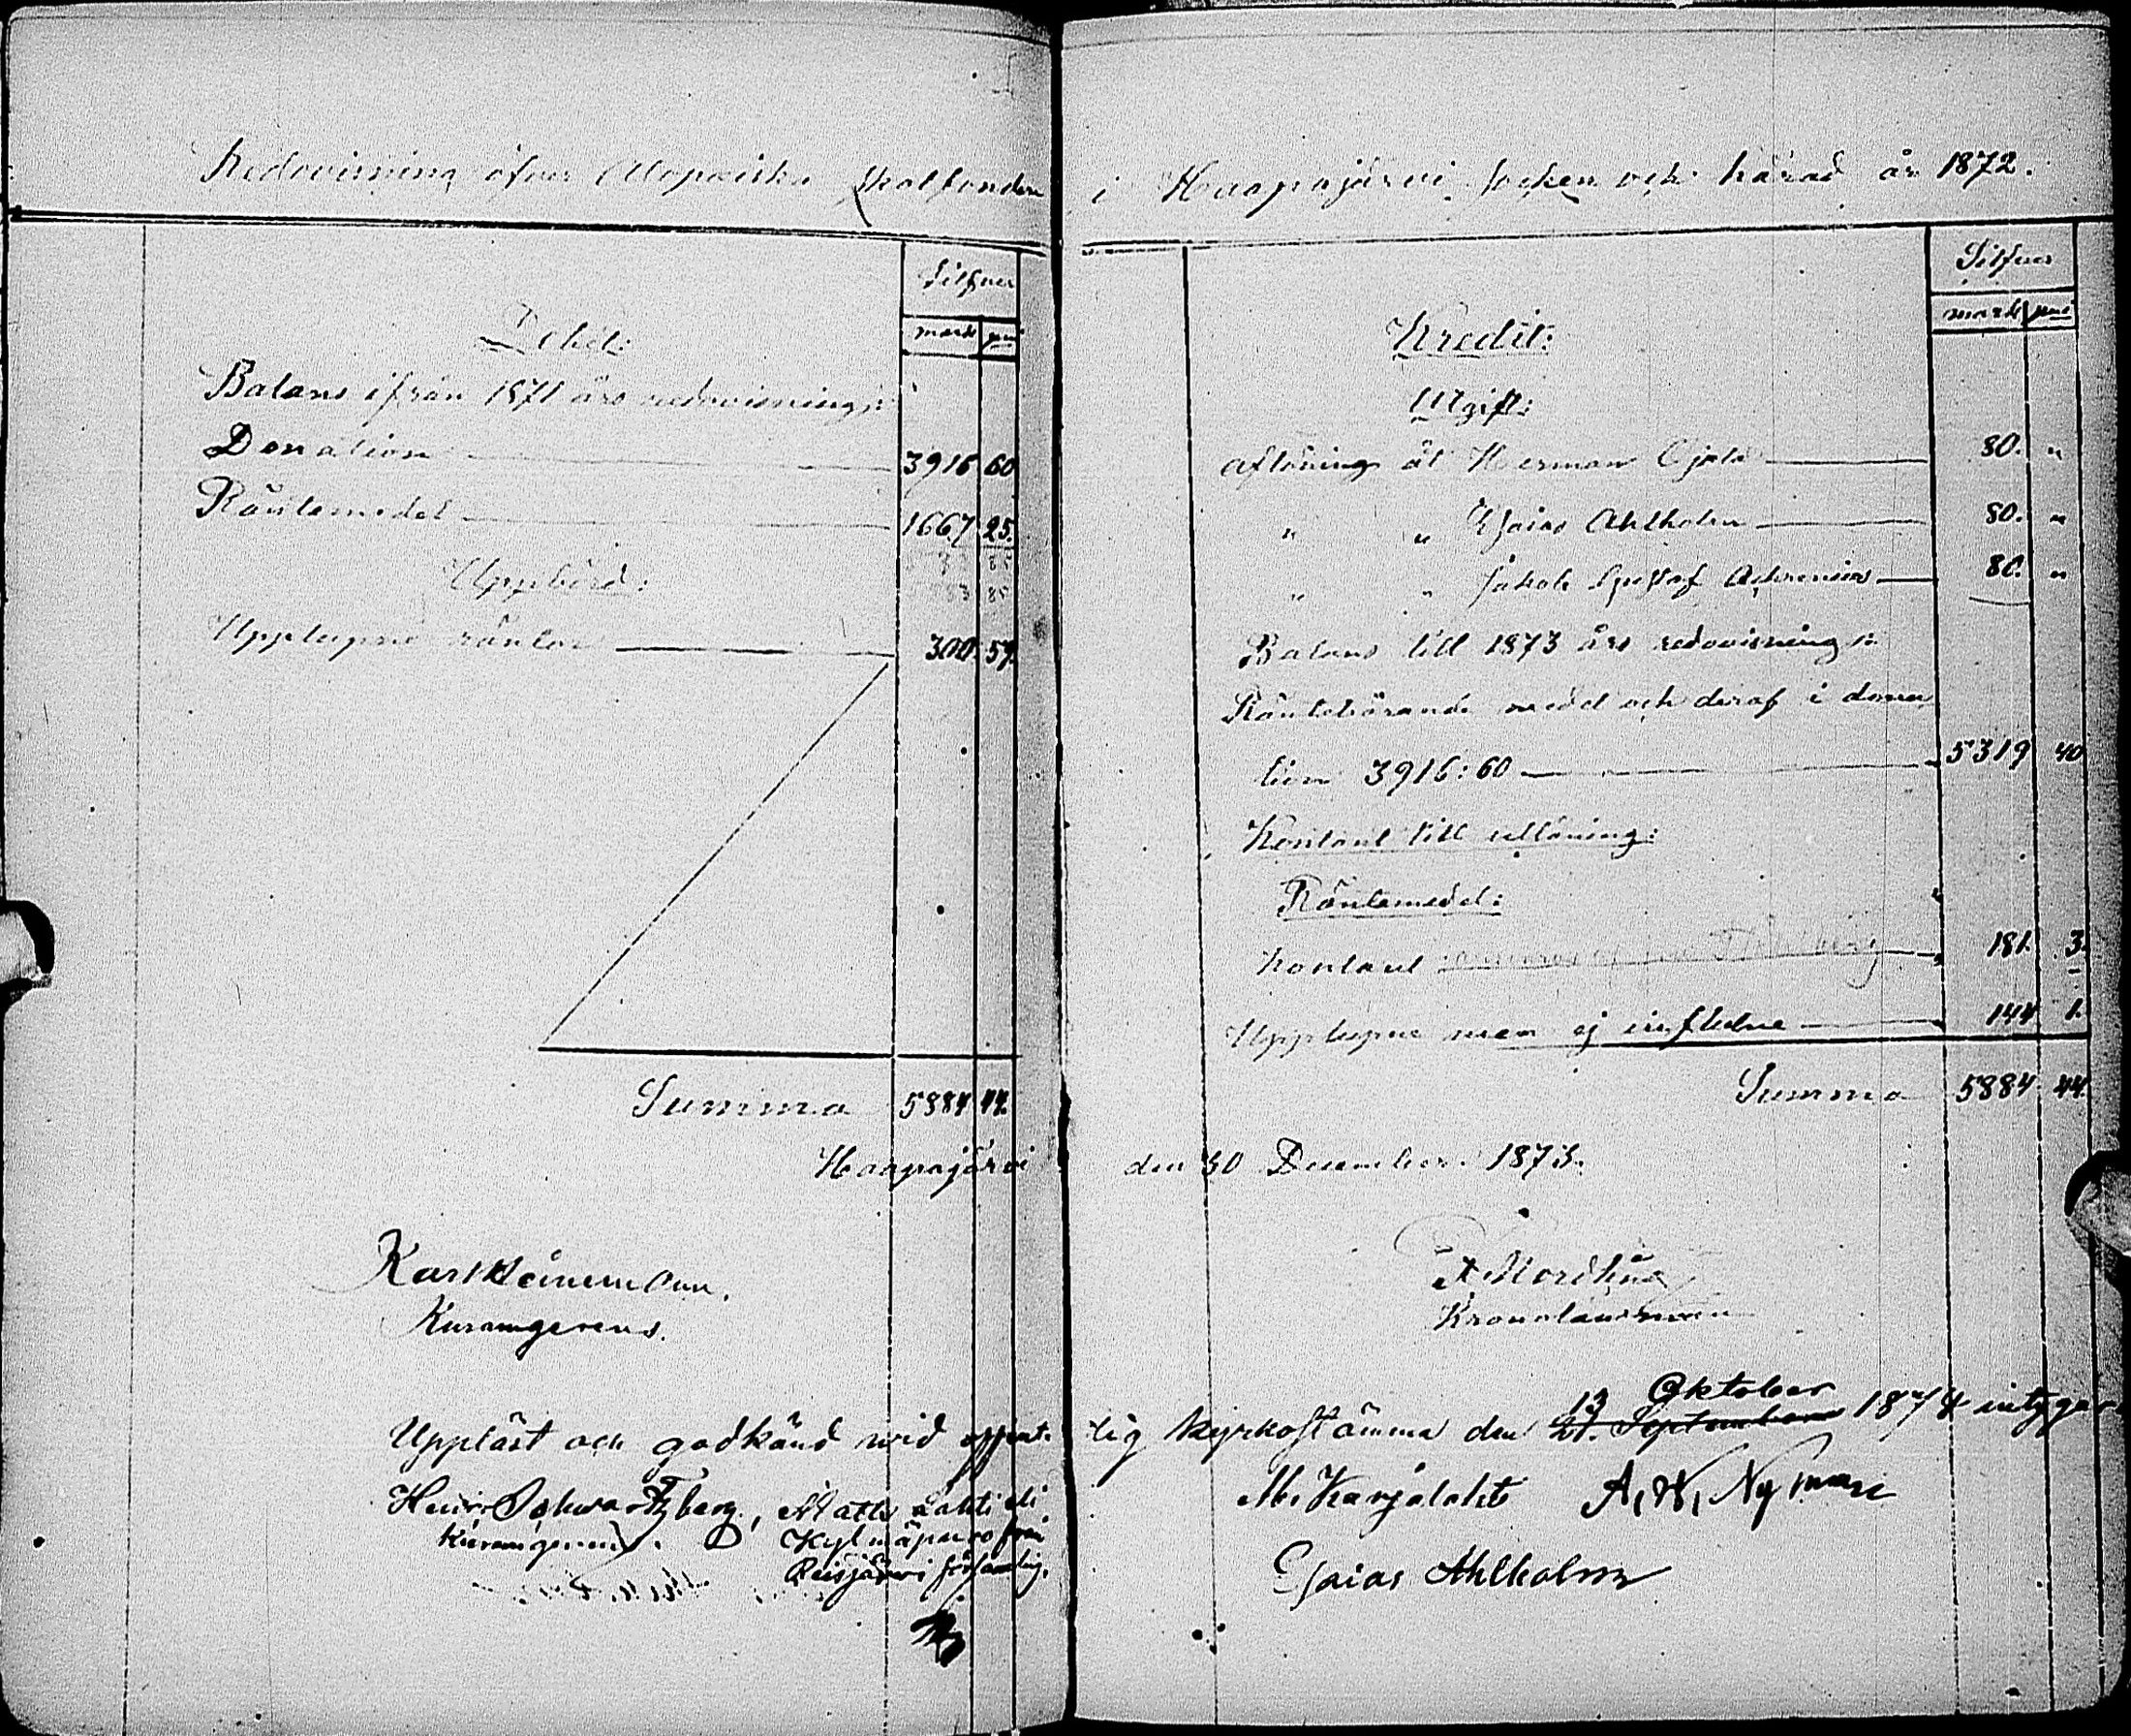 Redovisning öfver Alopæiska skolfonden i Haapajärvi socken och härad år 1872.
Silfver
mark pni
Debet:
Balans ifrån 1871 års redovisning:
Donation 3916 60
Räntemedel 1667 25.
Uppbörd:
Upplupne räntor 300 59.
Summa 5884 44.
Silfver
mark pni
Kredit:
Utgift:
Aflöning åt Herman Ojala 80. "
" " Esaias Ahlholm 80. "
" " Jakob Gustaf 80. "
Balans till 1873 års redovisning:
Räntebärande medel och deraf i dona
tion 3916:60 5319 40
Kontant till utlåning:
Räntemedel:
Kontant 181. 3.
Upplupne men ej influtne 144 1.
Summa 5884 44.
Haapajärvi den 30 December 1873.
Karl Heineman.
Kuramgerens.
Kronolänsman
Uppläst och godkänd wid offent- lig kyrkostämma den 21. September 13 Oktober 1874 intygar
Henr. Schwartzberg, Matts Lahti eli
Kuramgerens. Kylmäpuro från
Reisjärvi församling.
M. Karjalaht A. W. Nyman
Esaias Ahlholm